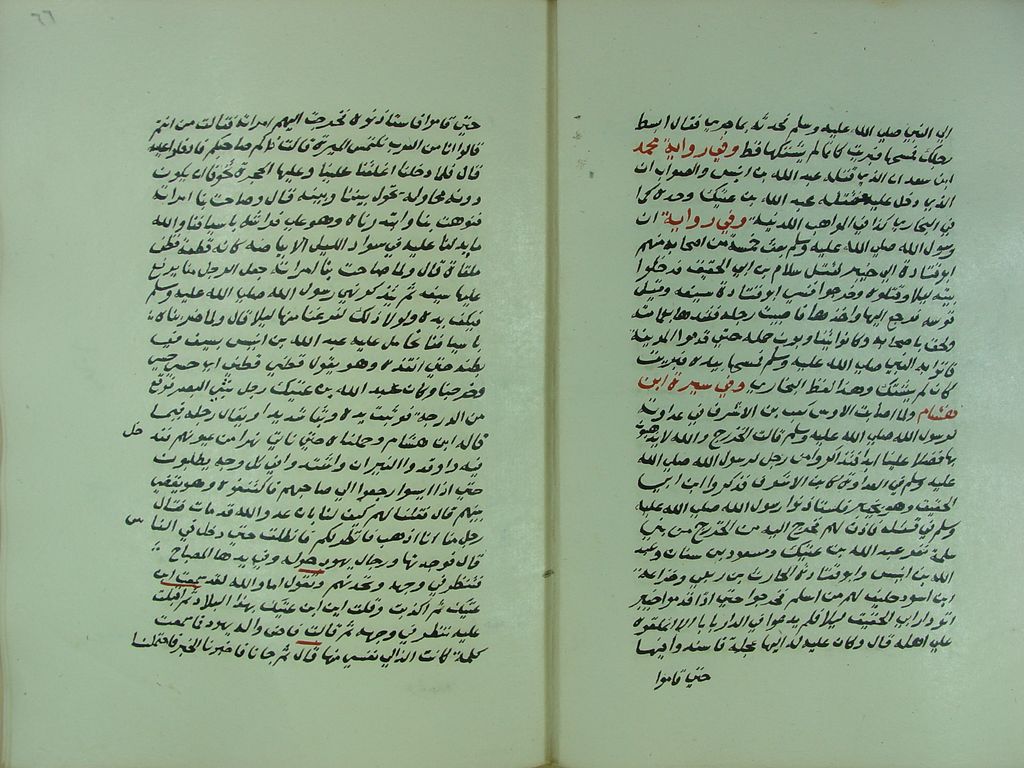 الي النبي صلي الله عليه وسلم فحدثه بما جري فقال ابسط
رجلك فمسحها فبرت كانها لم يشتكها قط وفي رواية محمد
ابن سعد ان الذي قتله عبد الله بن انيس والصواب ان
الذي دخل عليه فقتله عبد الله بن عتيك وحده كما
في البخاري كذا في المواهب اللدنية وفي رواية ان
رسول الله صلي الله عليه وسلم بعث خمسة من اصحابه منهم
ابو قتادة الي خيبر لقتل سلام بن ابي الحقيق فدخلوا
بيته ليلا وقتلوه وخرجوا فنسي ابو قتادة سيفه وقيل
قوسه فرجع اليها واخذها فاصيبت رجله فشدها بعمامته
ولحق باصحابه وكانوا يتناوبون حمله حتي قدموا المدينة
فاتوا به النبي صلي الله عليه وسلم فمسحها بيده فبريت
كان لم يشتك وهذا لفظ البخاري وفي سيرة ابن
هشام ولما اصابت الاوس كعب بن الاشرف في عداوته
لرسول الله صلي الله عليه وسلم قالت الخزرج والله لا يذهبون
بها فضلا علينا ابدا فتذاكروا من رجل لرسول الله صلي الله
عليه وسلم في العداوة كابن الاشرف فذكروا ابن ابي
الحقيق وهو بخيبر فاستاذنوا رسول الله صلي الله عليه
وسلم في قتله فاذن لهم فخرج اليه من الخزرج من بني
سلمة نفر عبد الله بن عتيك ومسعود بن سنان وعبد
الله بن انيس وابو قتادة الحارث بن ربعي وخزاعة
ابن اسود حليف لهم من اسلم فخرجوا حتي اذا قدموا خيبر
اتوا دار ابي الحقيق ليلا فلم يدعوا في الدار بابا الا اغلقوه
علي اهله قال وكان عليه له اليها عجلة فاسندوا فيها
حتي قاموا
٦٦
حتي قاموا فاستاذنوه فخرجت اليهم امراته فقالت من انتم
قالوا اناس من العرب نلتمس الميرة قالت ذاكم صاحبكم فادخلوا عليه
قال فلما دخلنا اغلقنا علينا وعليها الحجرة تخوفا ان يكون
دونه محاولة تحول بيننا وبينه قال وصاحت بنا امراته
فنوهت بنا وابتدرناه وهو علي فراشه باسيافنا والله
ما يدلنا عليه في سواد الليل الا بياضه كانه قطنة قطن
ملقاة قال ولما صاحت بنا امراته جعل الرجل منا يرفع
عليها سيفه ثم يتذكر نهي رسول الله صلي الله عليه وسلم
فيكف يده ولولا ذلك لفرغنا منها ليلا قال ولما ضربناه
باسيافنا تحامل عليه عبد الله بن انيس بسيفه في
بطنه حتي انفذه وهو يقول قطني قطني اي حسبي حسبي
وخرجنا وكان عبد الله بن عتيك رجل سيئ البصر فوقع
من الدرجة فوثيت يده وثيا شديدا ويقال رجله فيما
قاله ابن هشام وحملناه حتي ناتي نهرا من عيونهم فند
خل
فيه واوقدوا النيران واشتدوا في كل وجه يطلبون
حتي اذا ايسوا رجعوا الي صاحبهم فاكتنفوه وهو يقضي
بينهم قال فقلنا لهم كيف لنا بان عدو الله قد مات فقال
رجل منا انا اذهب فانظر لكم فانطلق حتي دخل في النا
س
قال فوجدتها ورجال يهود حوله وفي يدها المصباح
فتنظر في وجهه وتحدثهم وتقول اما والله لقد سمعت ابن
عتيك ثم اكذبت وقلت اني ابن عتيك بهذا البلاد ثم اقبلت
عليه تنظر في وجهه ثم قالت فاض واله يهود فما سمعت
كلمة كانت الذ الي نفسي منها قال ثم جانا فاخبرنا الخبر فاحتملنا